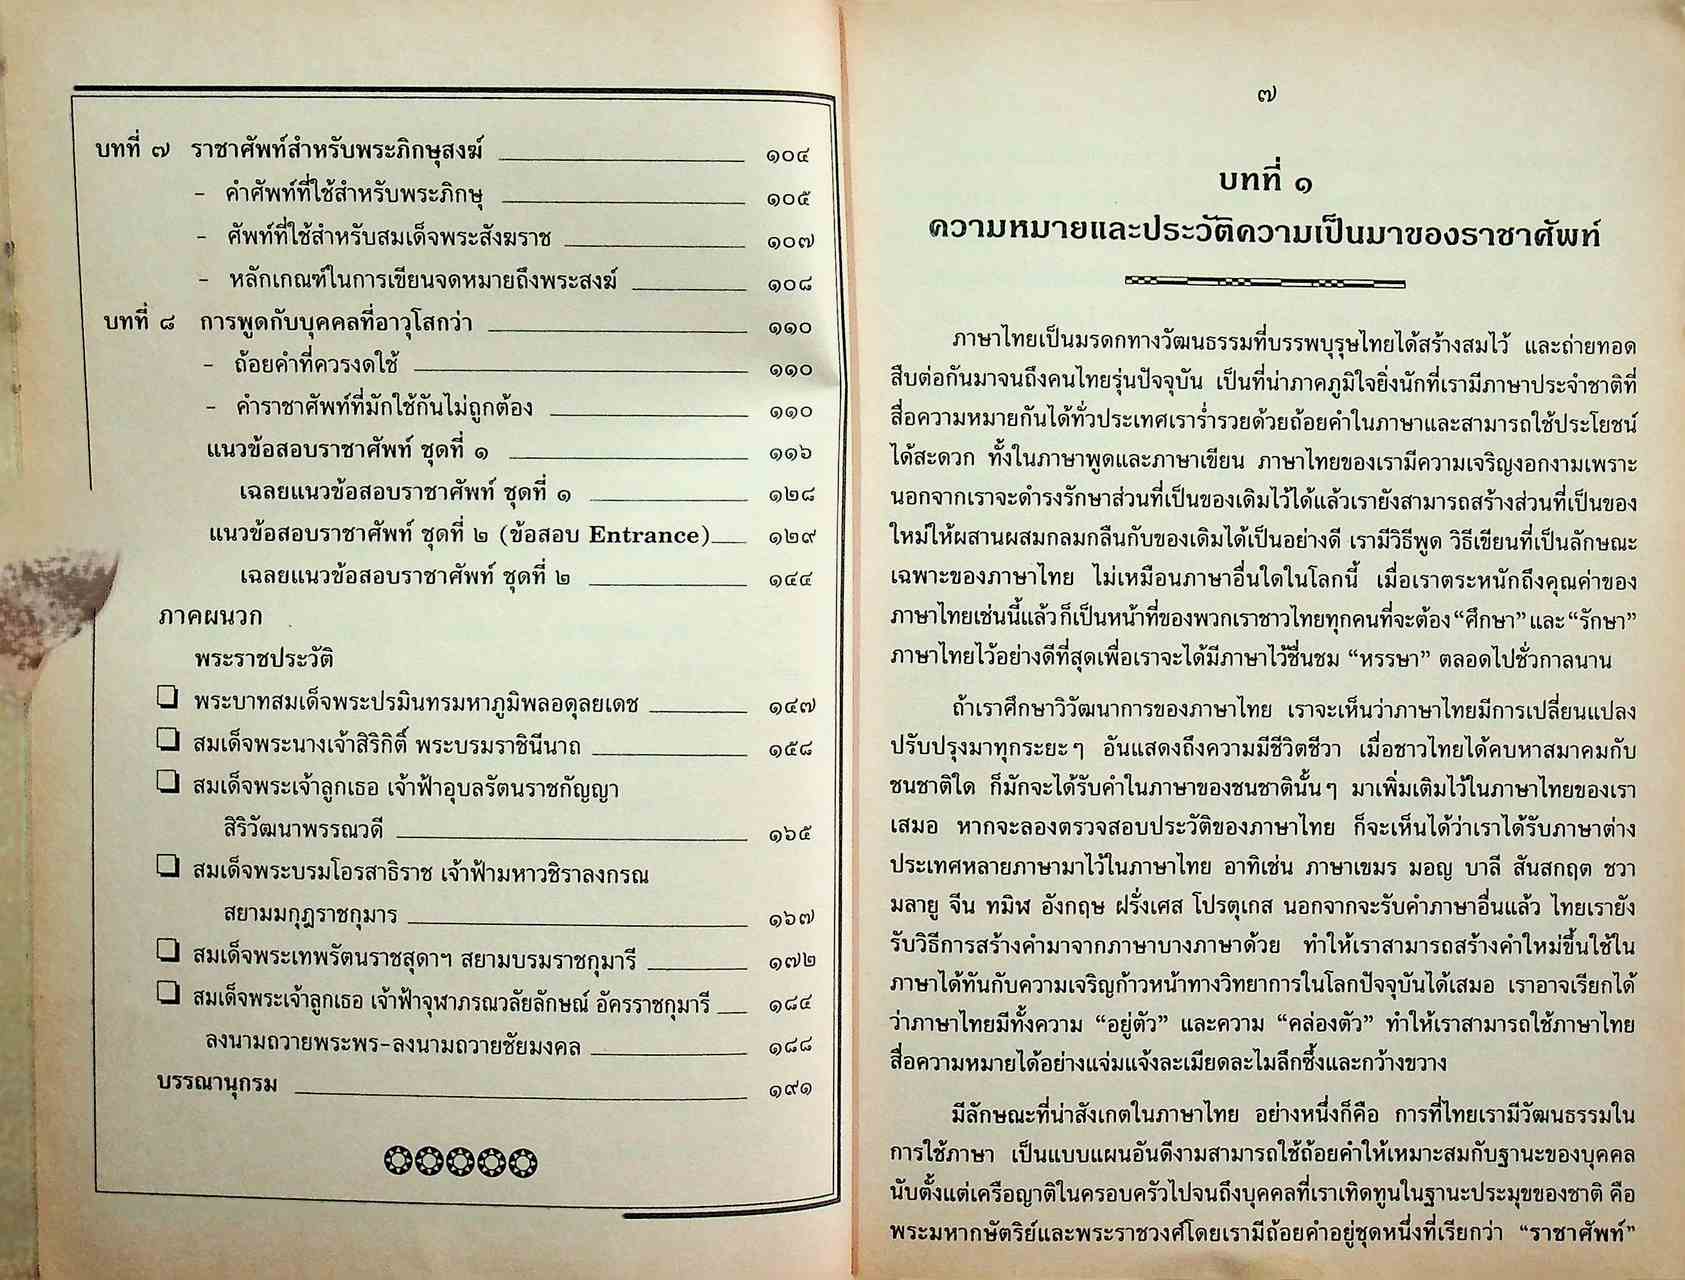 บทที่ ๗ ราชาศัพท์สำหรับพระภิกษุสงฆ์ ๑๐๔
- คำศัพท์ที่ใช้สำหรับพระภิกษุ ๑๐๕
- ศัพท์ที่ใช้สำหรับสมเด็จพระสังฆราช ๑๐๗
- หลักเกณฑ์ในการเขียนจดหมายถึงพระสงฆ์ ๑๐๘
บทที่ ๘ การพูดกับบุคคลที่อาวุโสกว่า ๑๑๐
- ถ้อยคำที่ควรงดใช้ ๑๑๐
- คำราชาศัพท์ที่มักใช้กันไม่ถูกต้อง ๑๑๐
แนวข้อสอบราชาศัพท์ ชุดที่ ๑ ๑๑๖
เฉลยแนวข้อสอบราชาศัพท์ ชุดที่ ๑ ๑๒๘
แนวข้อสอบราชาศัพท์ ชุดที่ ๒ (ข้อสอบ Entrance) ๑๒๙
เฉลยแนวข้อสอบราชาศัพท์ ชุดที่ ๒ ๑๔๔
ภาคผนวก
พระราชประวัติ
❏ พระบาทสมเด็จพระปรมินทรมหาภูมิพลอดุลยเดช ๑๔๗
❏ สมเด็จพระนางเจ้าสิริกิติ์ พระบรมราชินีนาถ ๑๕๘
❏ สมเด็จพระเจ้าลูกเธอ เจ้าฟ้าอุบลรัตนราชกัญญา
สิริวัฒนาพรรณวดี ๑๖๕
❏ สมเด็จพระบรมโอรสาธิราช เจ้าฟ้ามหาวชิราลงกรณ
สยามมกุฎราชกุมาร ๑๖๗
❏ สมเด็จพระเทพรัตนราชสุดาฯ สยามบรมราชกุมารี ๑๗๒
❏ สมเด็จพระเจ้าลูกเธอ เจ้าฟ้าจุฬาภรณวลัยลักษณ์ อัครราชกุมารี ๑๘๔
ลงนามถวายพระพร-ลงนามถวายชัยมงคล ๑๘๘
บรรณานุกรม ๑๙๑
๗
บทที่ ๑
ความหมายและประวัติความเป็นมาของราชาศัพท์
ภาษาไทยเป็นมรดกทางวัฒนธรรมที่บรรพบุรุษไทยได้สร้างสมไว้ และถ่ายทอด
สืบต่อกันมาจนถึงคนไทยรุ่นปัจจุบัน เป็นที่น่าภาคภูมิใจยิ่งนักที่เรามีภาษาประจำชาติที่
สื่อความหมายกันได้ทั่วประเทศเราร่ำรวยด้วยถ้อยคำในภาษาและสามารถใช้ประโยชน์
ได้สะดวก ทั้งในภาษาพูดและภาษาเขียน ภาษาไทยของเรามีความเจริญงอกงามเพราะ
นอกจากเราจะดำรงรักษาส่วนที่เป็นของเดิมไว้ได้แล้วเรายังสามารถสร้างส่วนที่เป็นของ
ใหม่ให้ผสานผสมกลมกลืนกับของเดิมได้เป็นอย่างดี เรามีวิธีพูด วิธีเขียนที่เป็นลักษณะ
เฉพาะของภาษาไทย ไม่เหมือนภาษาอื่นใดในโลกนี้ เมื่อเราตระหนักถึงคุณค่าของ
ภาษาไทยเช่นนี้แล้วก็เป็นหน้าที่ของพวกเราชาวไทยทุกคนที่จะต้อง “ศึกษา” และ “รักษา”
ภาษาไทยไว้อย่างดีที่สุดเพื่อเราจะได้มีภาษาไว้ชื่นชม “หรรษา” ตลอดไปชั่วกาลนาน
ถ้าเราศึกษาวิวัฒนาการของภาษาไทย เราจะเห็นว่าภาษาไทยมีการเปลี่ยนแปลง
ปรับปรุงมาทุกระยะๆ อันแสดงถึงความมีชีวิตชีวา เมื่อชาวไทยได้คบหาสมาคมกับ
ชนชาติใด ก็มักจะได้รับคำในภาษาของชนชาตินั้นๆ มาเพิ่มเติมไว้ในภาษาไทยของเรา
เสมอ หากจะลองตรวจสอบประวัติของภาษาไทย ก็จะเห็นได้ว่าเราได้รับภาษาต่าง
ประเทศหลายภาษามาไว้ในภาษาไทย อาทิเช่น ภาษาเขมร มอญ บาลี สันสกฤต ชวา
มลายู จีน ทมิฬ อังกฤษ ฝรั่งเศส โปรตุเกส นอกจากจะรับคำภาษาอื่นแล้ว ไทยเรายัง
รับวิธีการสร้างคำมาจากภาษาบางภาษาด้วย ทำให้เราสามารถสร้างคำใหม่ขึ้นใช้ใน
ภาษาได้ทันกับความเจริญก้าวหน้าทางวิทยาการในโลกปัจจุบันได้เสมอ เราอาจเรียกได้
ว่าภาษาไทยมีทั้งความ “อยู่ตัว” และความ “คล่องตัว” ทำให้เราสามารถใช้ภาษาไทย
สื่อความหมายได้อย่างแจ่มแจ้งละเมียดละไมลึกซึ้งและกว้างขวาง
มีลักษณะที่น่าสังเกตในภาษาไทย อย่างหนึ่งก็คือ การที่ไทยเรามีวัฒนธรรมใน
การใช้ภาษา เป็นแบบแผนอันดีงามสามารถใช้ถ้อยคำให้เหมาะสมกับฐานะของบุคคล
นับตั้งแต่เครือญาติในครอบครัวไปจนถึงบุคคลที่เราเทิดทูนในฐานะประมุขของชาติ คือ
พระมหากษัตริย์และพระราชวงศ์โดยเรามีถ้อยคำอยู่ชุดหนึ่งที่เรียกว่า “ราชาศัพท์”